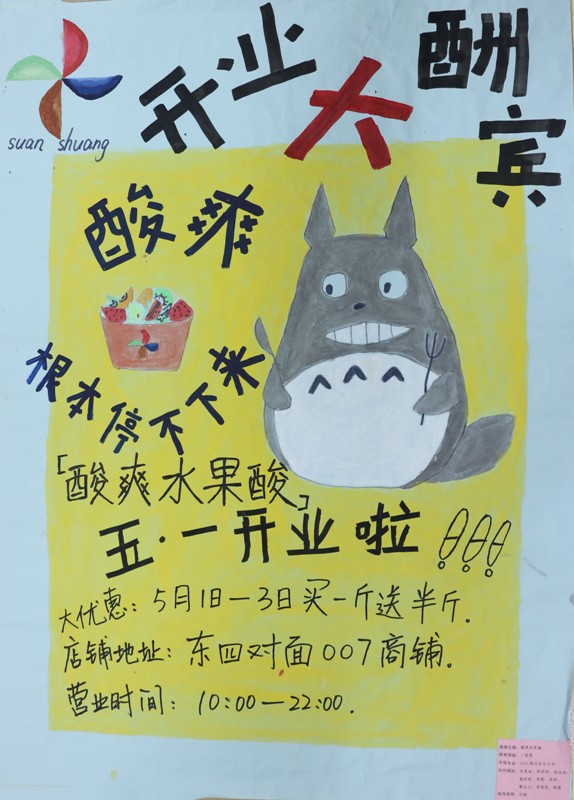 开业大酬宾
suan shuang
酸爽
根本停不下来
「酸爽水果酸」
五·一开业啦!!!
大优惠：5月1日—3日买一斤送半斤.
店铺地址：东四对面007商铺.
营业时间：10:00—22:00.